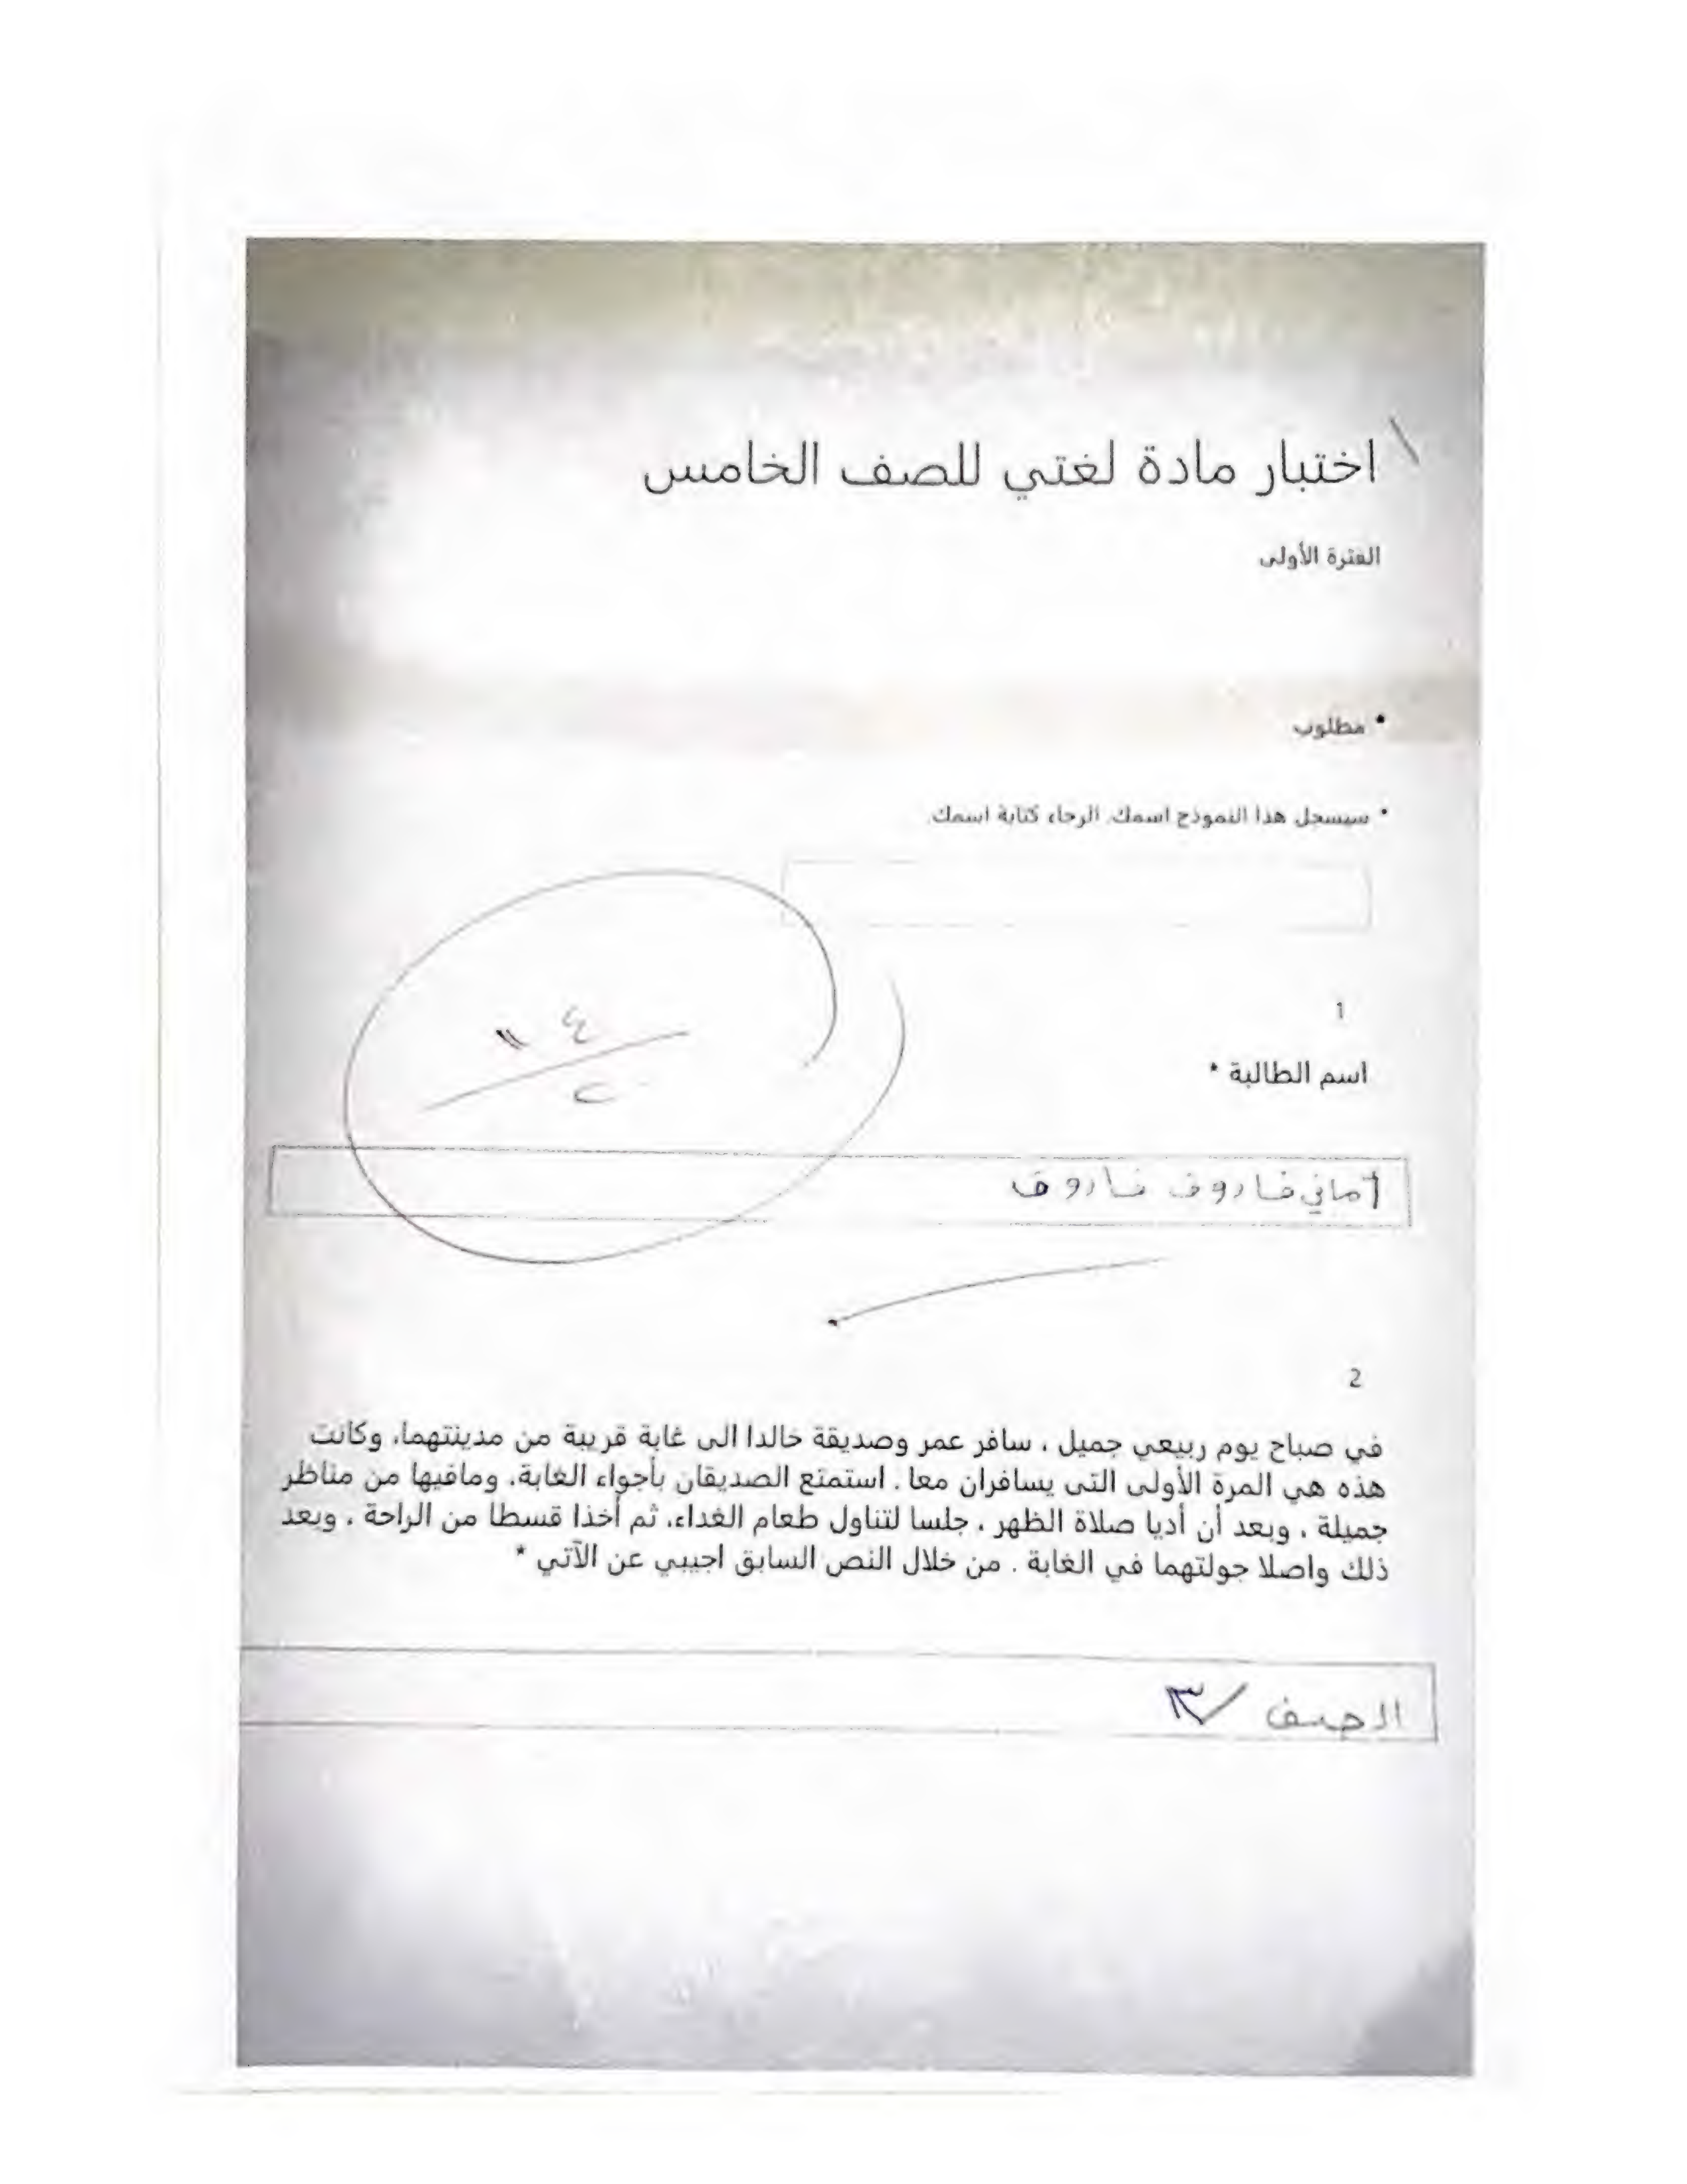 اختبار مادة لغتي للصف الخامس
الفترة الأولى
* مطلوب
* سيسجل هذا النموذج اسمك. الرجاء كتابة اسمك.
1
اسم الطالبة *
أماني فاروق فاروق
2
في صباح يوم ربيعي جميل ، سافر عمر وصديقة خالدا الى غابة قريبة من مدينتهما، وكانت
هذه هي المرة الأولى التى يسافران معا . استمتع الصديقان بأجواء الغابة، ومافيها من مناظر
جميلة ، وبعد أن أديا صلاة الظهر ، جلسا لتناول طعام الغداء، ثم أخذا قسطا من الراحة ، وبعد
ذلك واصلا جولتهما في الغابة . من خلال النص السابق اجيبي عن الآتي *
الصف /